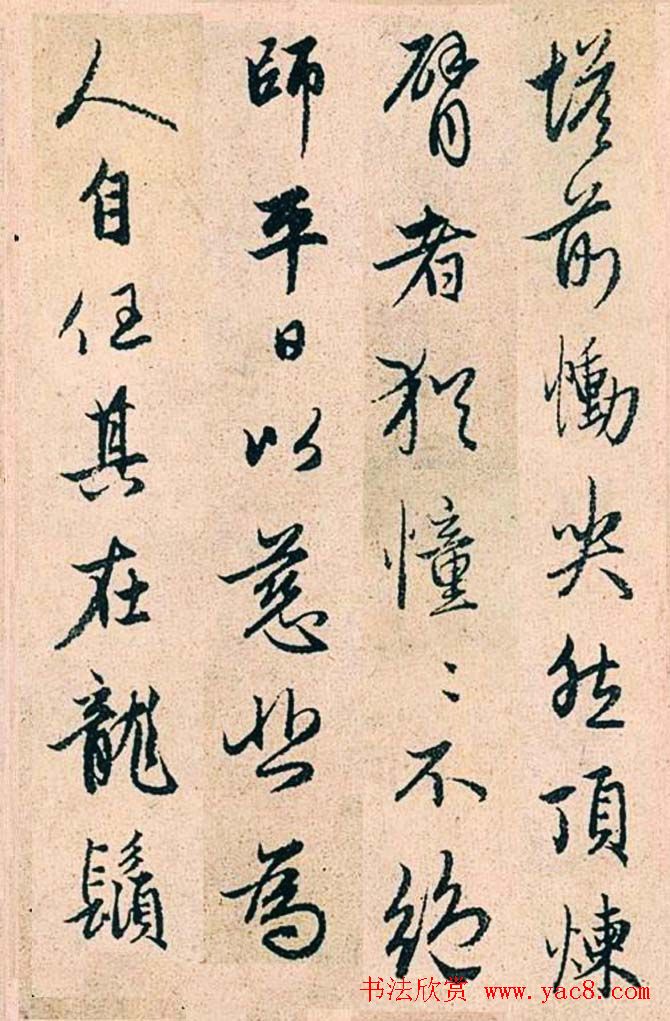 塔前慟哭然頂煉
臂者猶憧〻不絕
師平日以慈悲為
人自任其在龍鬚
书法欣赏 www.yac8.com